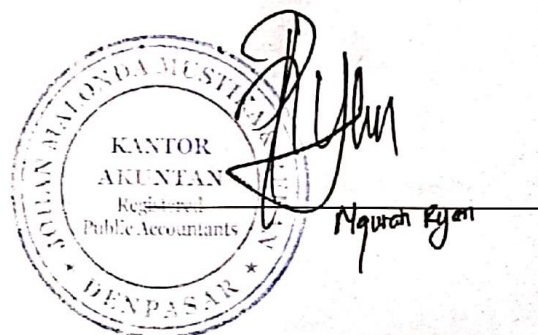 JOHAN MALONDA MUSTIKA
KANTOR
AKUNTAN
Registered
Public Accountants
★ DENPASAR ★
Ngurah Ryan